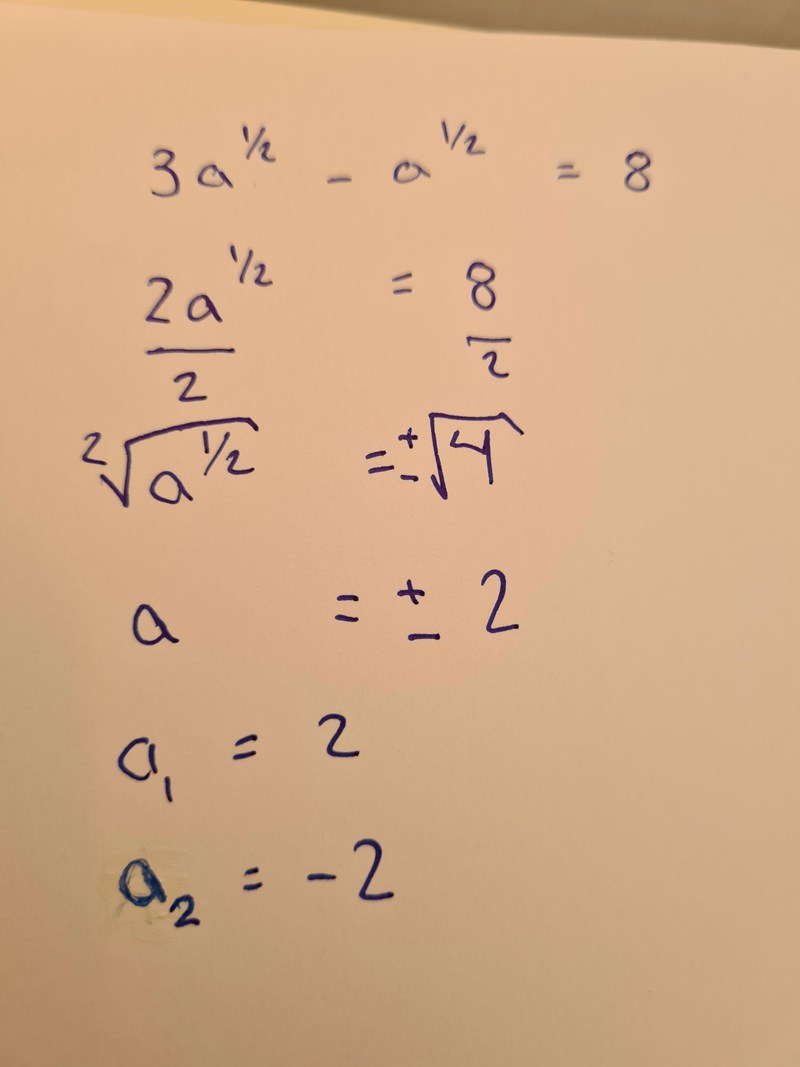 3a^1/2 - a^1/2 = 8
2a^1/2 / 2 = 8 / 2
²√(a^1/2) = ±√4
a = ± 2
a₁ = 2
a₂ = -2